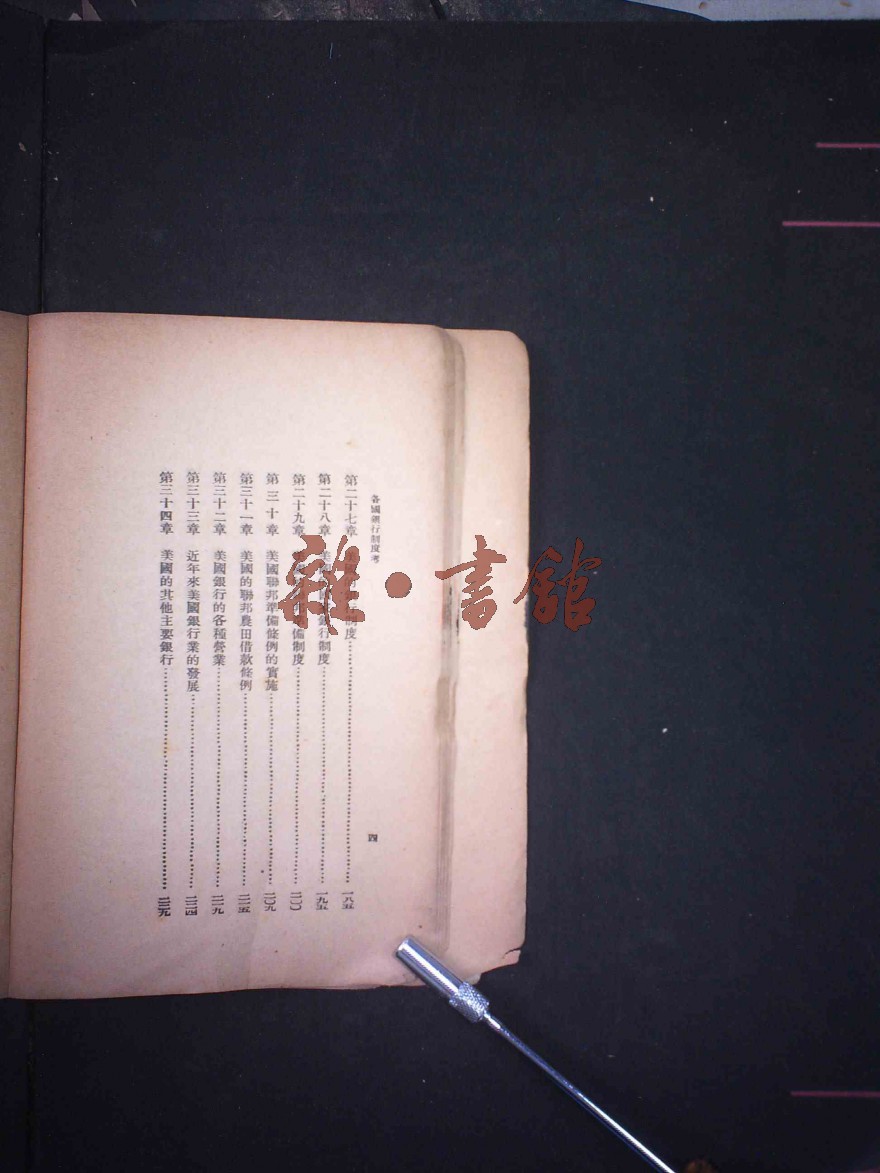 各國銀行制度考
四
第二十七章 制度 一八五
第二十八章 美 銀行制度 一九五
第二十九章 備制度 二〇〇
第三十章 美國聯邦準備條例的實施 二〇九
第三十一章 美國的聯邦農田借款條例 二一五
第三十二章 美國銀行的各種營業 二一九
第三十三章 近年來美國銀行業的發展 二二四
第三十四章 美國的其他主要銀行 二三九
雜·書館